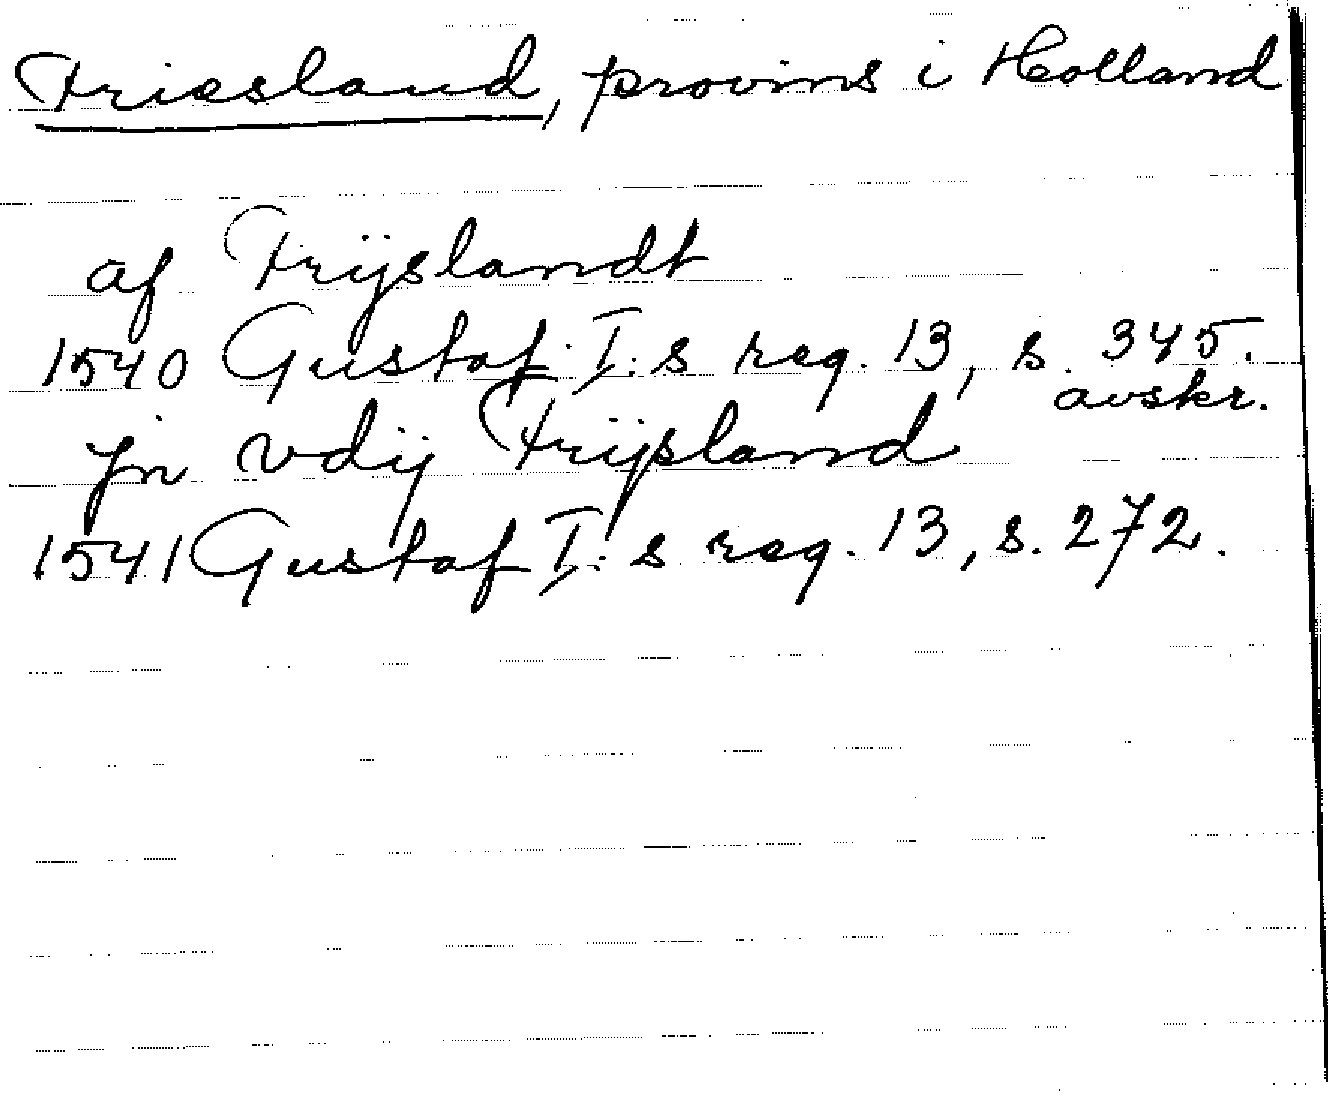 Friesland, provins i Holland
af Frijslandt
1540 Gustaf I:s reg. 13, s. 345.
avskr.
jn vdij Frijsland
1541 Gustaf I:s reg. 13, s. 272.